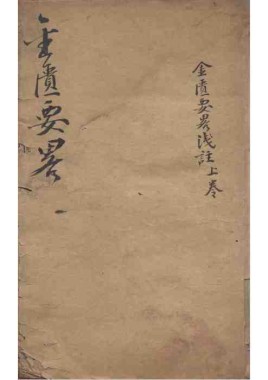 金匱要畧
金匱要畧浅註上卷